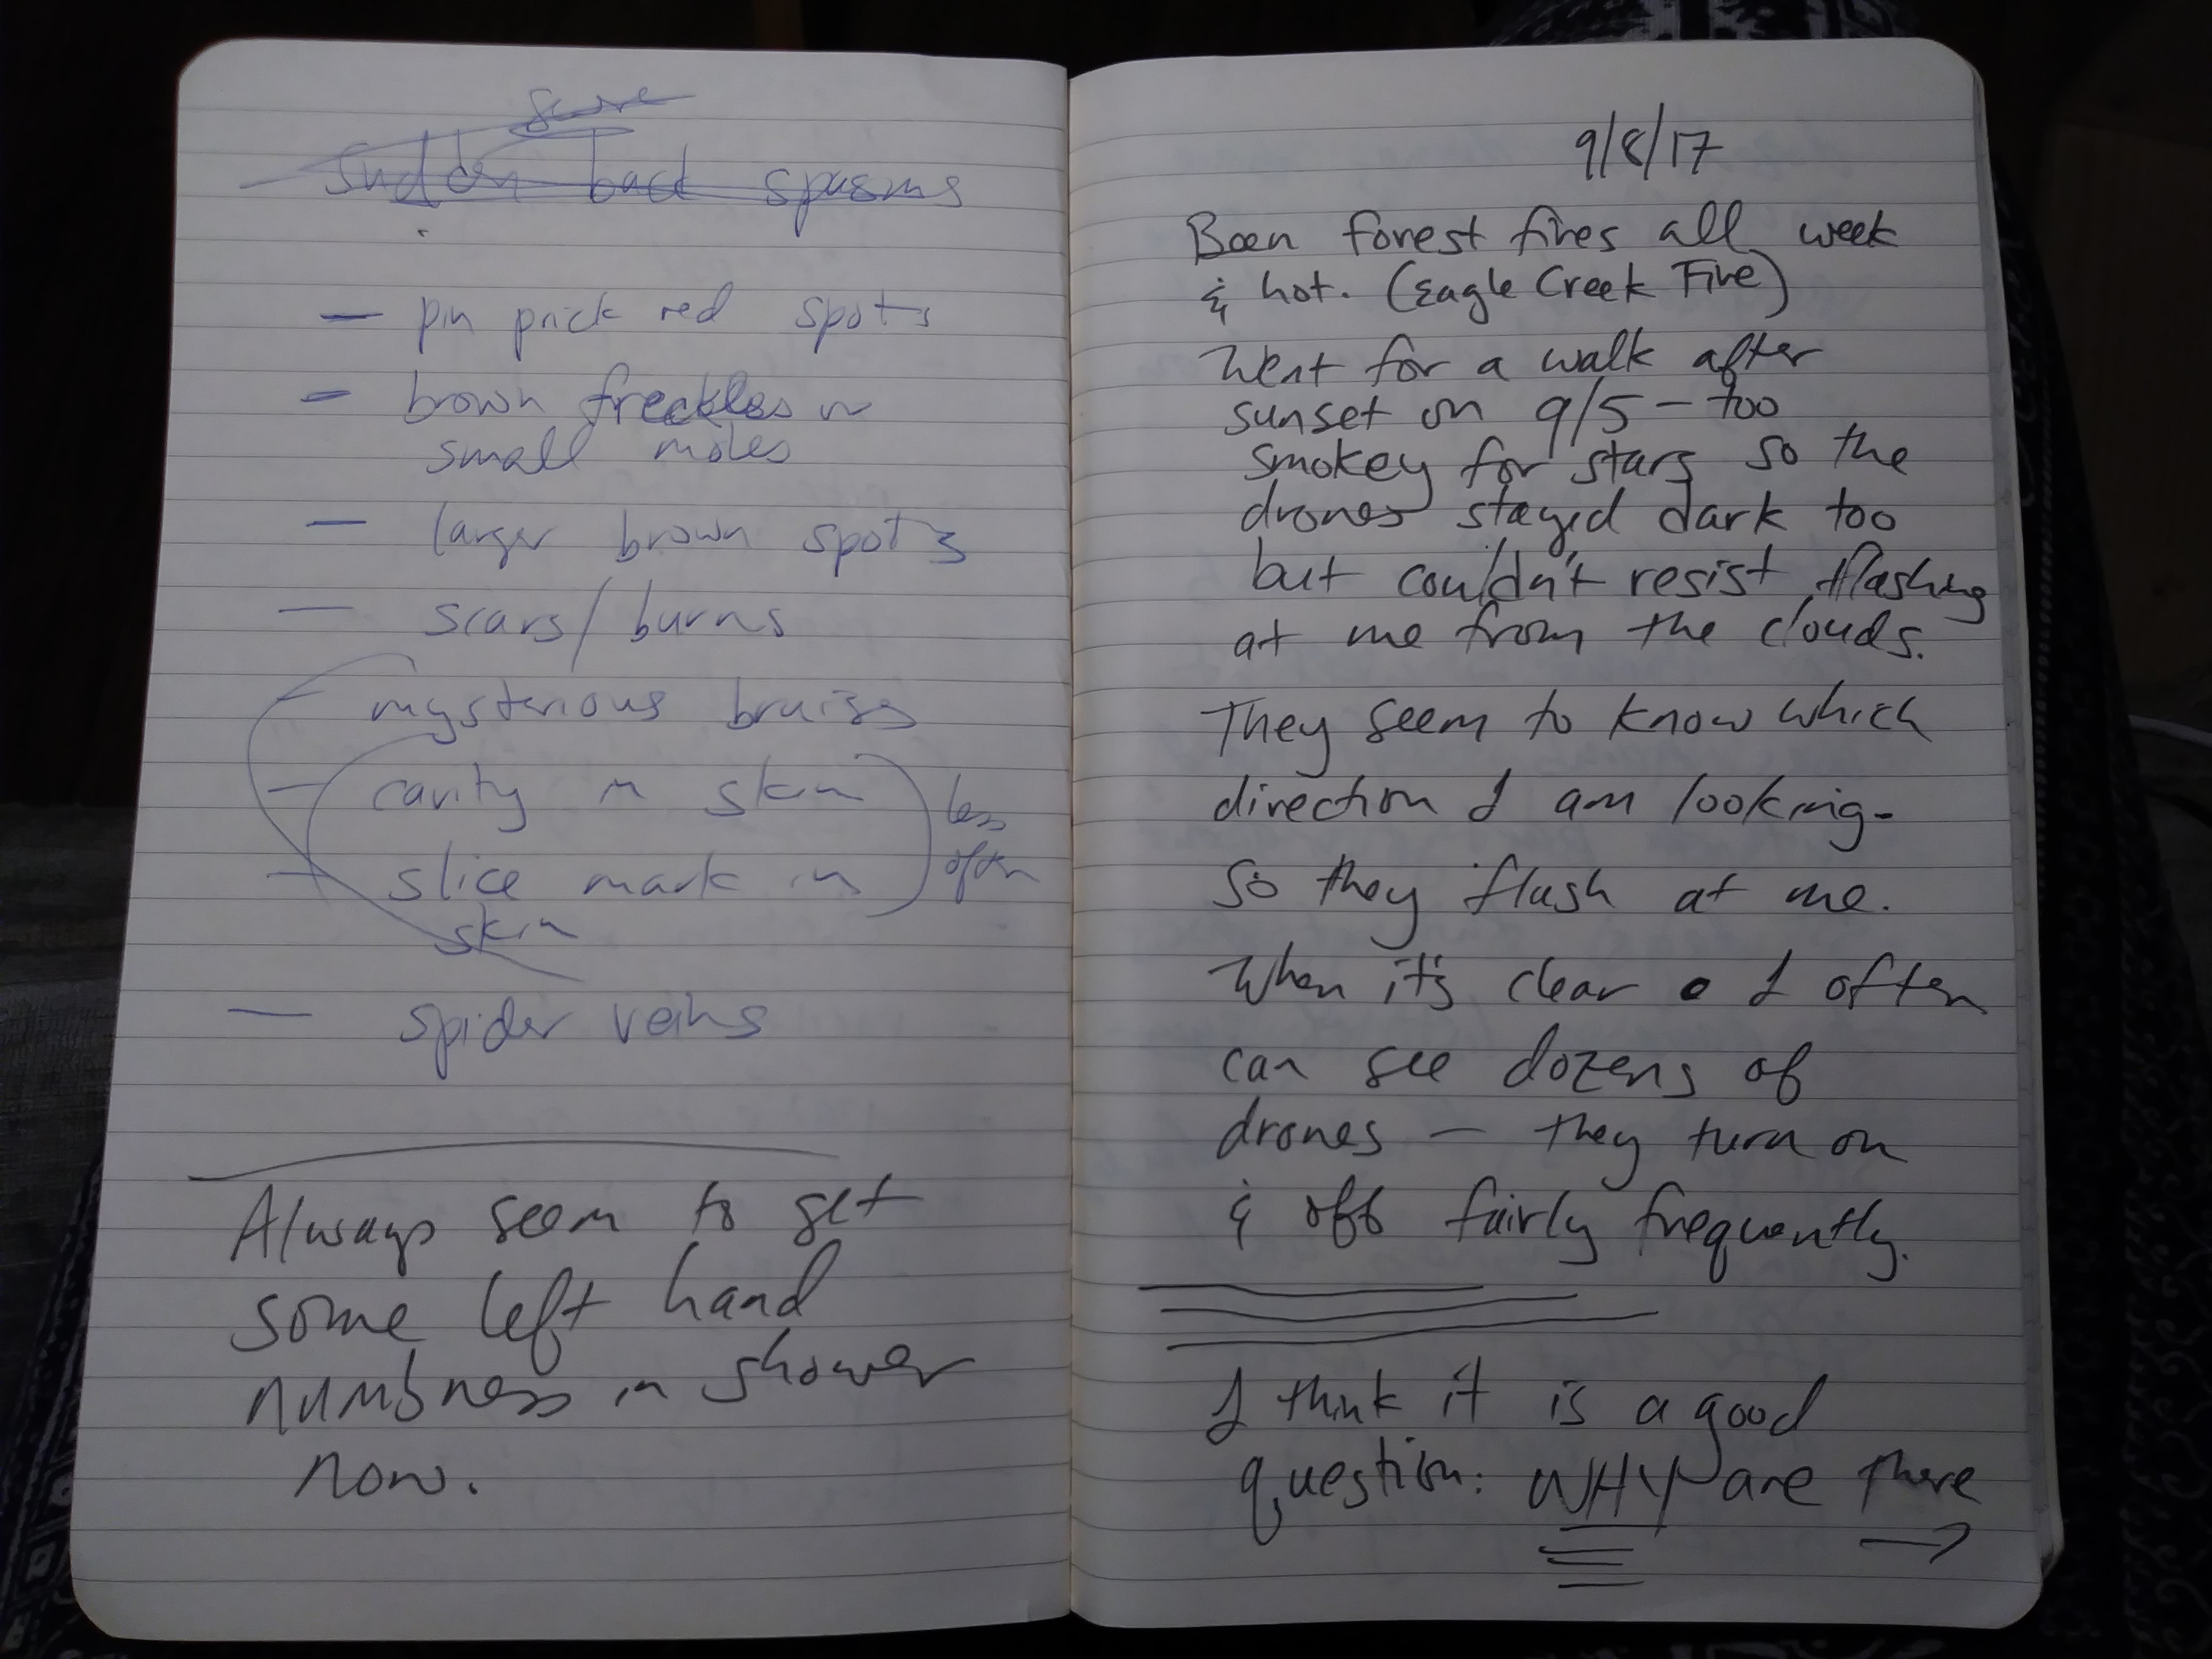 Sudden back spasms
— pin prick red spots
— brown freckles or
small moles
— larger brown spots
— scars/burns
— mysterious bruises
— cavity in skin
less
often
— slice mark in
skin
— spider veins
Always seem to get
some left hand
numbness in shower
now.
9/8/17
Been forest fires all week
& hot. (Eagle Creek Fire)
Went for a walk after
sunset on 9/5 - too
smokey for stars so the
drones stayed dark too
but couldn't resist flashing
at me from the clouds.
They seem to know which
direction I am looking-
So they flash at me.
When it's clear I often
can see dozens of
drones — they turn on
& off fairly frequently.
I think it is a good
question: WHY are there
→